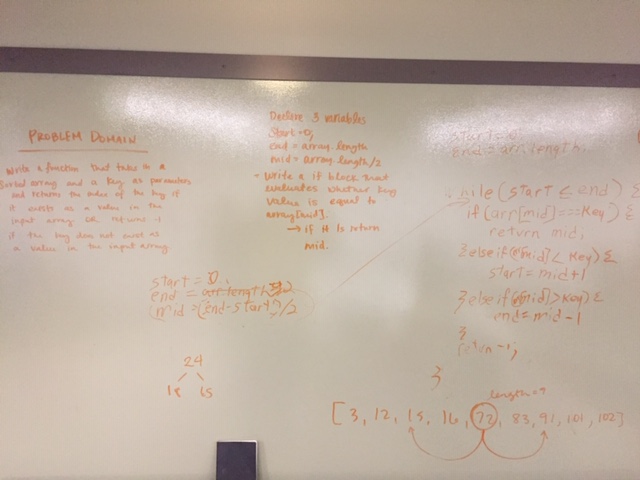 PROBLEM DOMAIN
Write a function that takes in a
sorted array and a key as parameters
and returns the index of the key if
it exists as a value in the
input array OR returns -1
if the key does not exist as
a value in the input array
Declare 3 variables
Start = 0,
end = array.length
mid = array.length/2
- Write a if block that
evaluates whether key
value is equal to
array[mid].
→ if it is return
mid.
start = 0
end = arr.length
while (start ≤ end) {
if (arr[mid] === key) {
return mid;
} else if (arr[mid] < key) {
start = mid+1
} else if (arr[mid] > key) {
end = mid - 1
}
return -1;
}
start = 0
end = arr.length
mid = (end-start)/2
24
18 15
length = 9
[3, 12, 15, 16, 72, 83, 91, 101, 102]